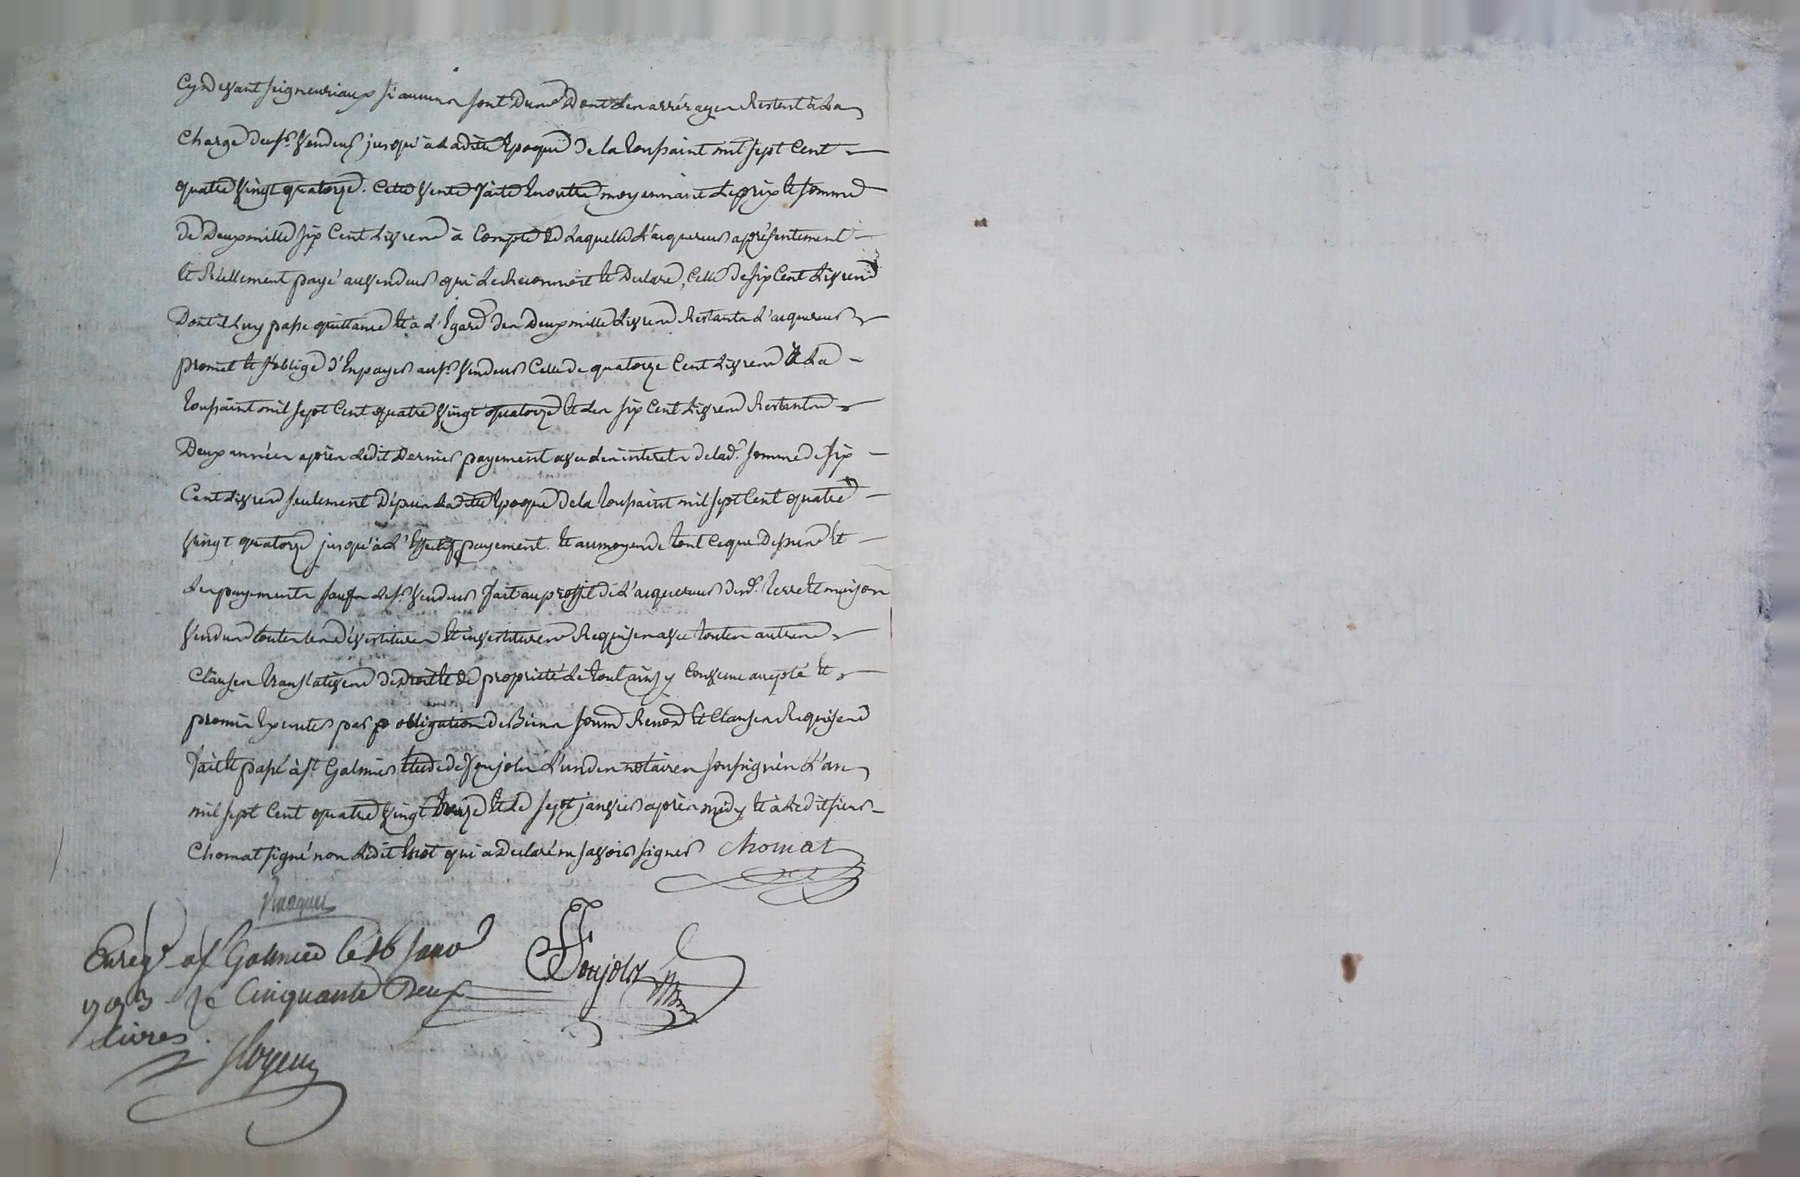 Cydevant seigneuriaux si aucuns sont dune dont les arrérages Restent à La
Charge dud sr. Vendeur jusqu'à Ladite Epoque de la Toussaint mil sept Cent
quatre Vingt quatorze. Cette Vente faite En outre moyennant Le prix Et somme
de Deux mille six Cent Livres à Compte de Laquelle L'acquereur a présentement
Et Réellement payé au Vendeur qui Le Reconnoit Et Declare, Celle de six Cent Livres
Dont il Luy passe quittance Et à L'Egard des Deux mille Livres Restants L'acquereur
promet Et s'oblige d'En payer aud sr. Vendeur Celle de quatorze Cent Livres à La
Toussaint mil sept Cent quatre Vingt quatorze Et Les six Cent Livres Restantes
Deux années après Ledit Dernier payement avec Les interets de lad. somme de six
Cent Livres seulement Depuis Ladite Epoque de la Toussaint mil sept Cent quatre
Vingt quatorze jusqu'à L'Effectif payement. Et au moyen de tout Ce que Dessus Et
Les payements faits Led sr. Vendeur fait au proffit de L'acquereur desd. terre Et maison
Vendus toutes les dévestitures Et investitures Requises avec toutes autres
Clauses translatives de droit Et de propriété Le tout ainsy Convenu accepté Et
promis Executer par obligation de Biens soumis Renon Et Clauses Requises
fait Et passé à st. Galmier Etude de Poujols L'un des notaires soussignés L'an
mil sept Cent quatre Vingt treize Et Le sept janvier après midy Et à Ledit sieur
Chomat signé non Ledit qui a Declaré ne savoir signer Chomat
Enregr. a st Galmier le 16 Janv
1793 Rc Cinquante Deux
Livres.